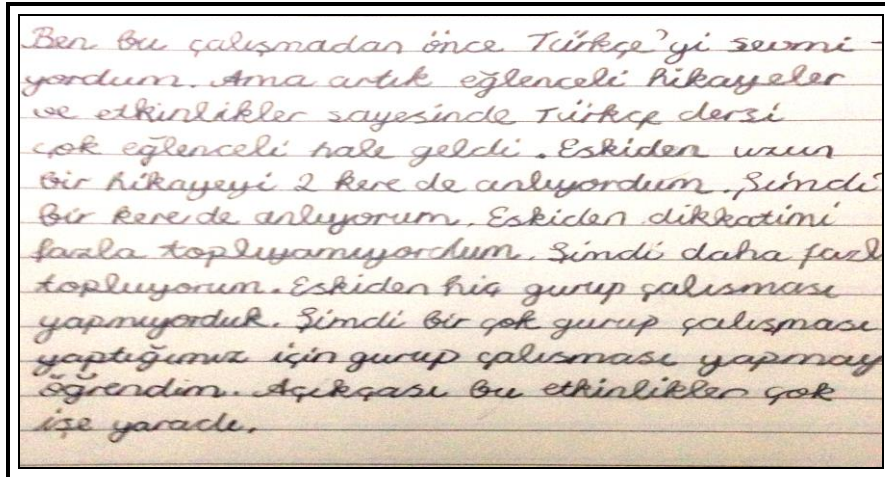 Ben bu çalışmadan önce Türkçe'yi sevmi-
yordum. Ama artık eğlenceli hikayeler
ve etkinlikler sayesinde Türkçe dersi
çok eğlenceli hale geldi. Eskiden uzun
bir hikayeyi 2 kere de anlıyordum. Şimdi
bir kere de anlıyorum. Eskiden dikkatimi
fazla toplıyamıyordum. Şimdi daha fazl
topluyorum. Eskiden hiç gurup çalısması
yapmıyorduk. Şimdi bir çok gurup çalışması
yaptığımız için gurup çalısması yapmay
öğrendim. Açıkçası bu etkinlikler çok
işe yaradı.